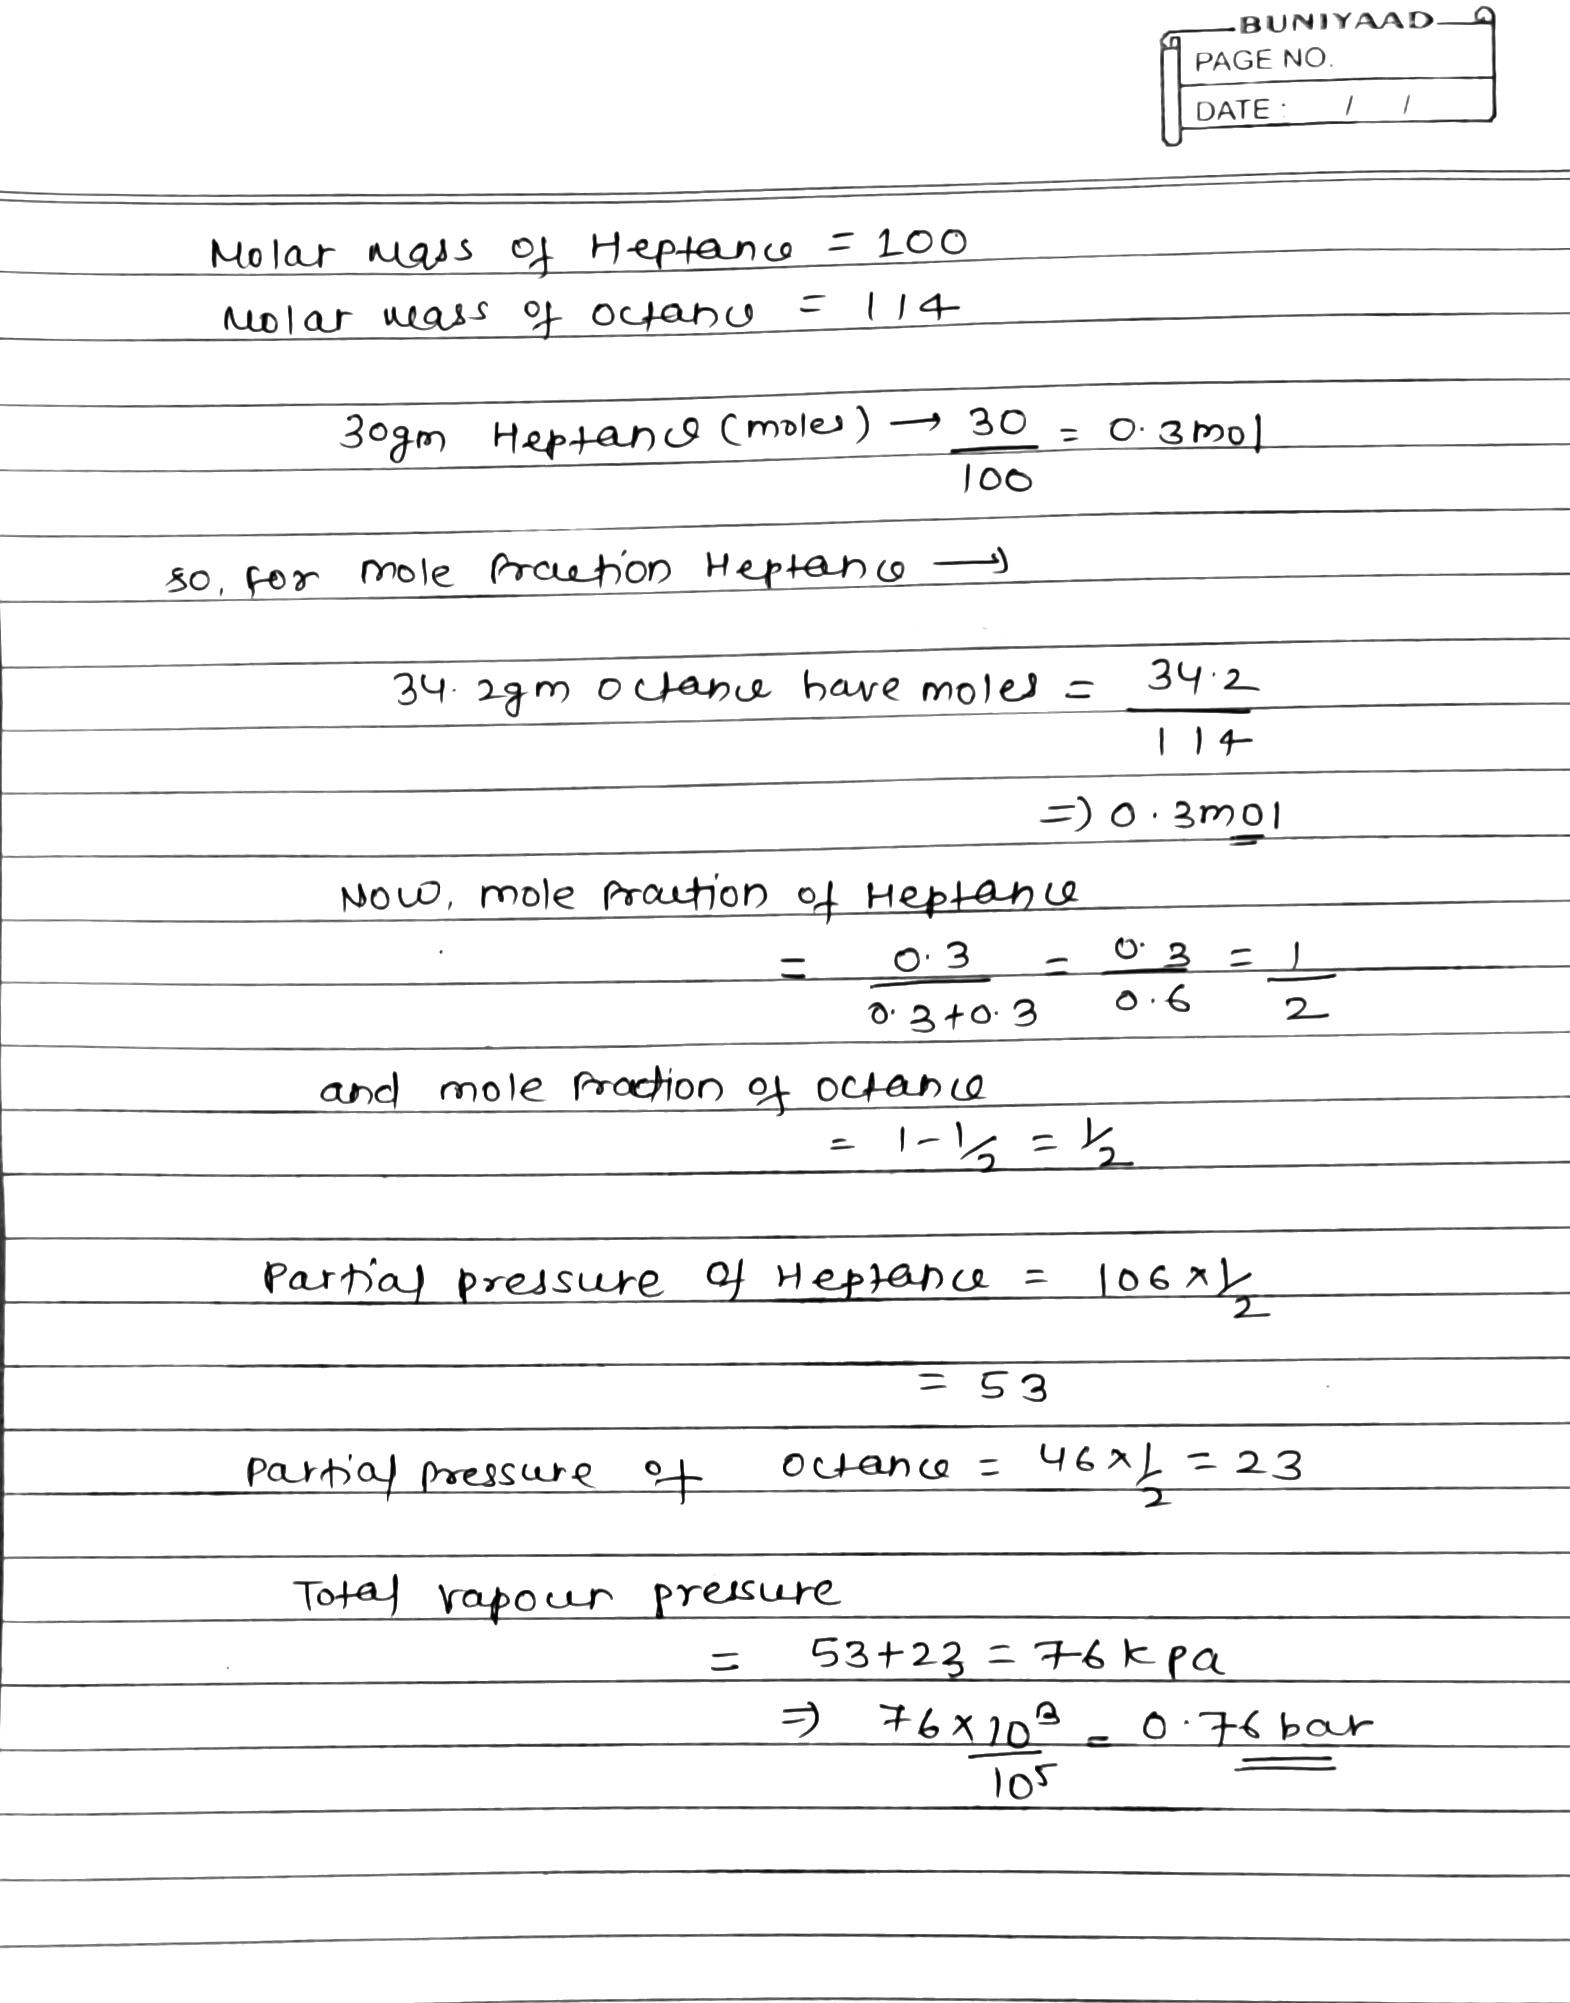 BUNIYAAD
PAGE NO.
DATE : / /
Molar mass of Heptance = 100
Molar mass of octane = 114
30gm Heptane (moles) → 30/100 = 0.3mol
so, for mole fraction Heptance →
34.2gm octance have moles = 34.2/114
=) 0.3mol
Now, mole fraction of Heptance
= 0.3/0.3+0.3 = 0.3/0.6 = 1/2
and mole fraction of octance
= 1-1/2 = 1/2
Partial pressure of Heptance = 106 x 1/2
= 53
Partial pressure of octance = 46 x 1/2 = 23
Total vapour pressure
= 53+23 = 76 k pa
=) 76 x 10³/10⁵ = 0.76 bar